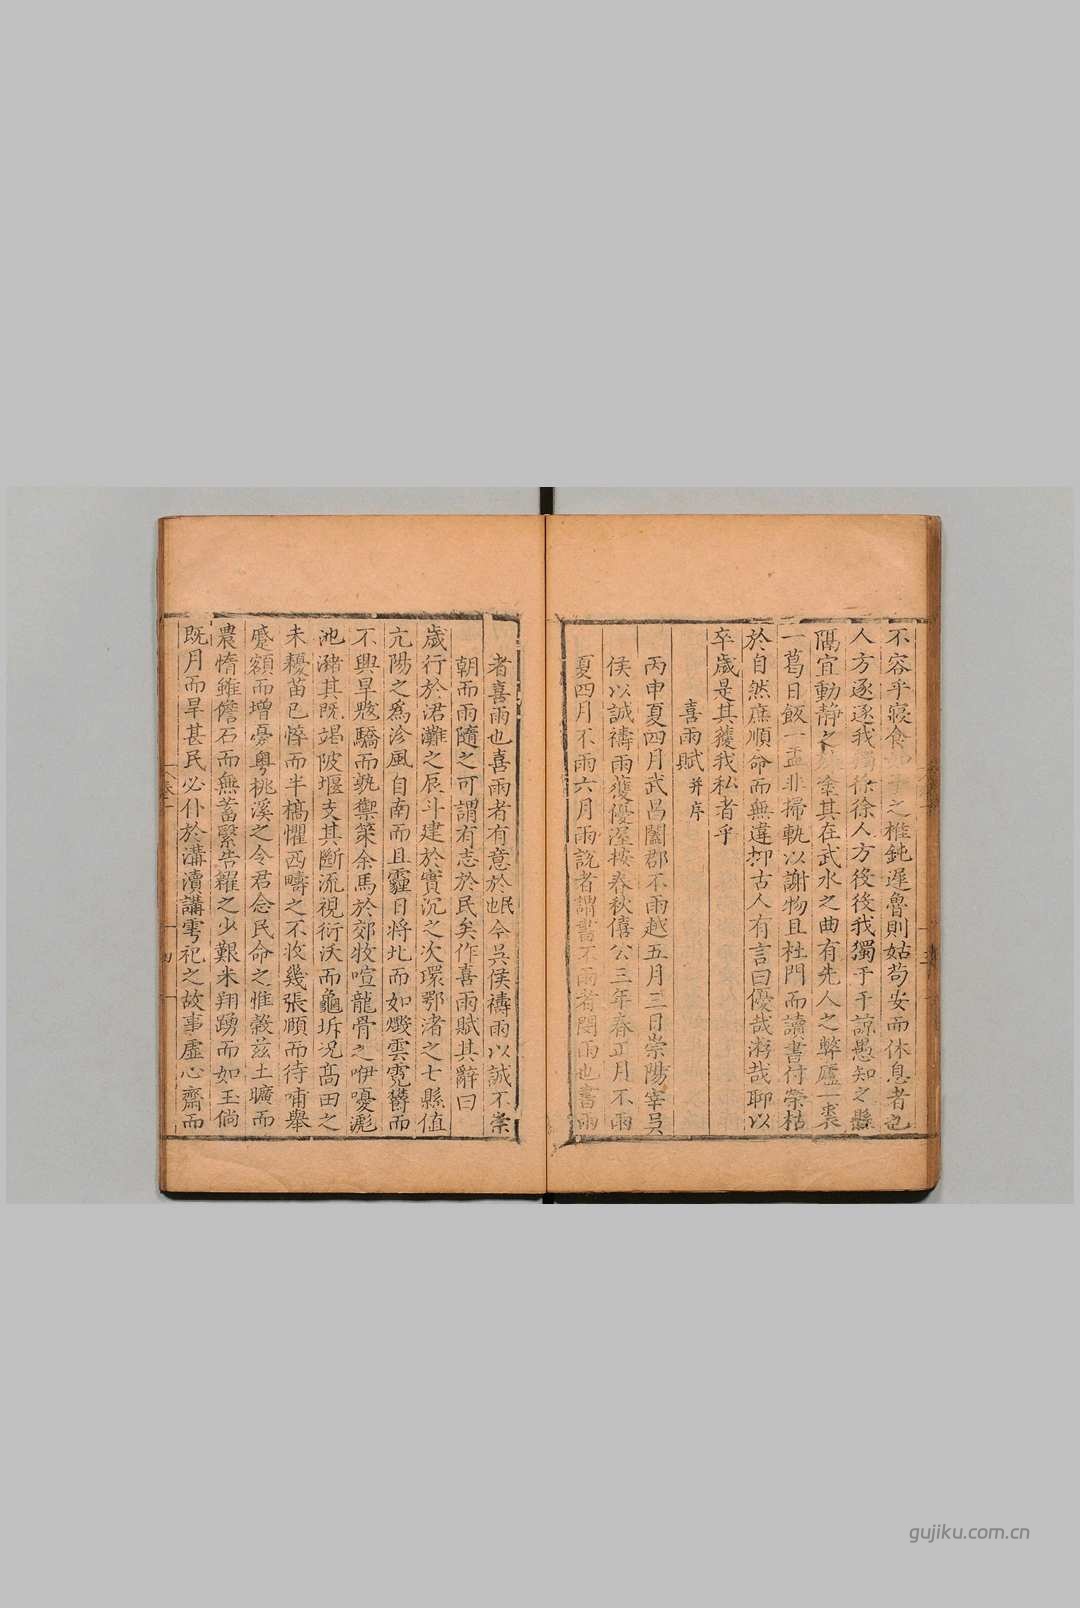 不容乎寢食如予之椎鈍遲魯則姑茍安而休息者也
人方逐逐我獨徐徐人方役役我獨于于諒愚知之縣
隅宜動靜之殊塗其在武水之曲有先人之弊廬一裘
一葛日飯一盂非掃軌以謝物且杜門而讀書付榮枯
於自然庶順命而無違抑古人有言曰優哉游哉聊以
卒歲是其獲我私者乎
喜雨賦并序
丙申夏四月武昌闔郡不雨越五月三日崇陽宰吳
侯以誠禱雨獲優渥按春秋僖公三年春正月不雨
夏四月不雨六月雨說者謂書不雨者閔雨也書雨
者喜雨也喜雨者有意於民也今吳侯禱雨以誠不崇
朝而雨隨之可謂有志於民矣作喜雨賦其辭曰
歲行於涒灘之辰斗建於實沉之次環鄂渚之七縣值
亢陽之為沴風自南而且霾日將北而如燬雲霓鬱而
不興旱魃驕而孰禦策余馬於郊牧喧龍骨之咿嚘彪
池瀦其既竭陂堰支其斷流視衍沃而龜坼況高田之
未耰苗已悴而半槁懼西疇之不收幾張頤而待哺舉
蹙額而增憂粵桃溪之令君念民命之惟穀茲土曠而
農惰雖儋石而無蓄繄告糴之少艱米翔踴而如玉倘
既月而旱甚民必仆於溝瀆講雩祀之故事虛心齋而
gujiku.com.cn